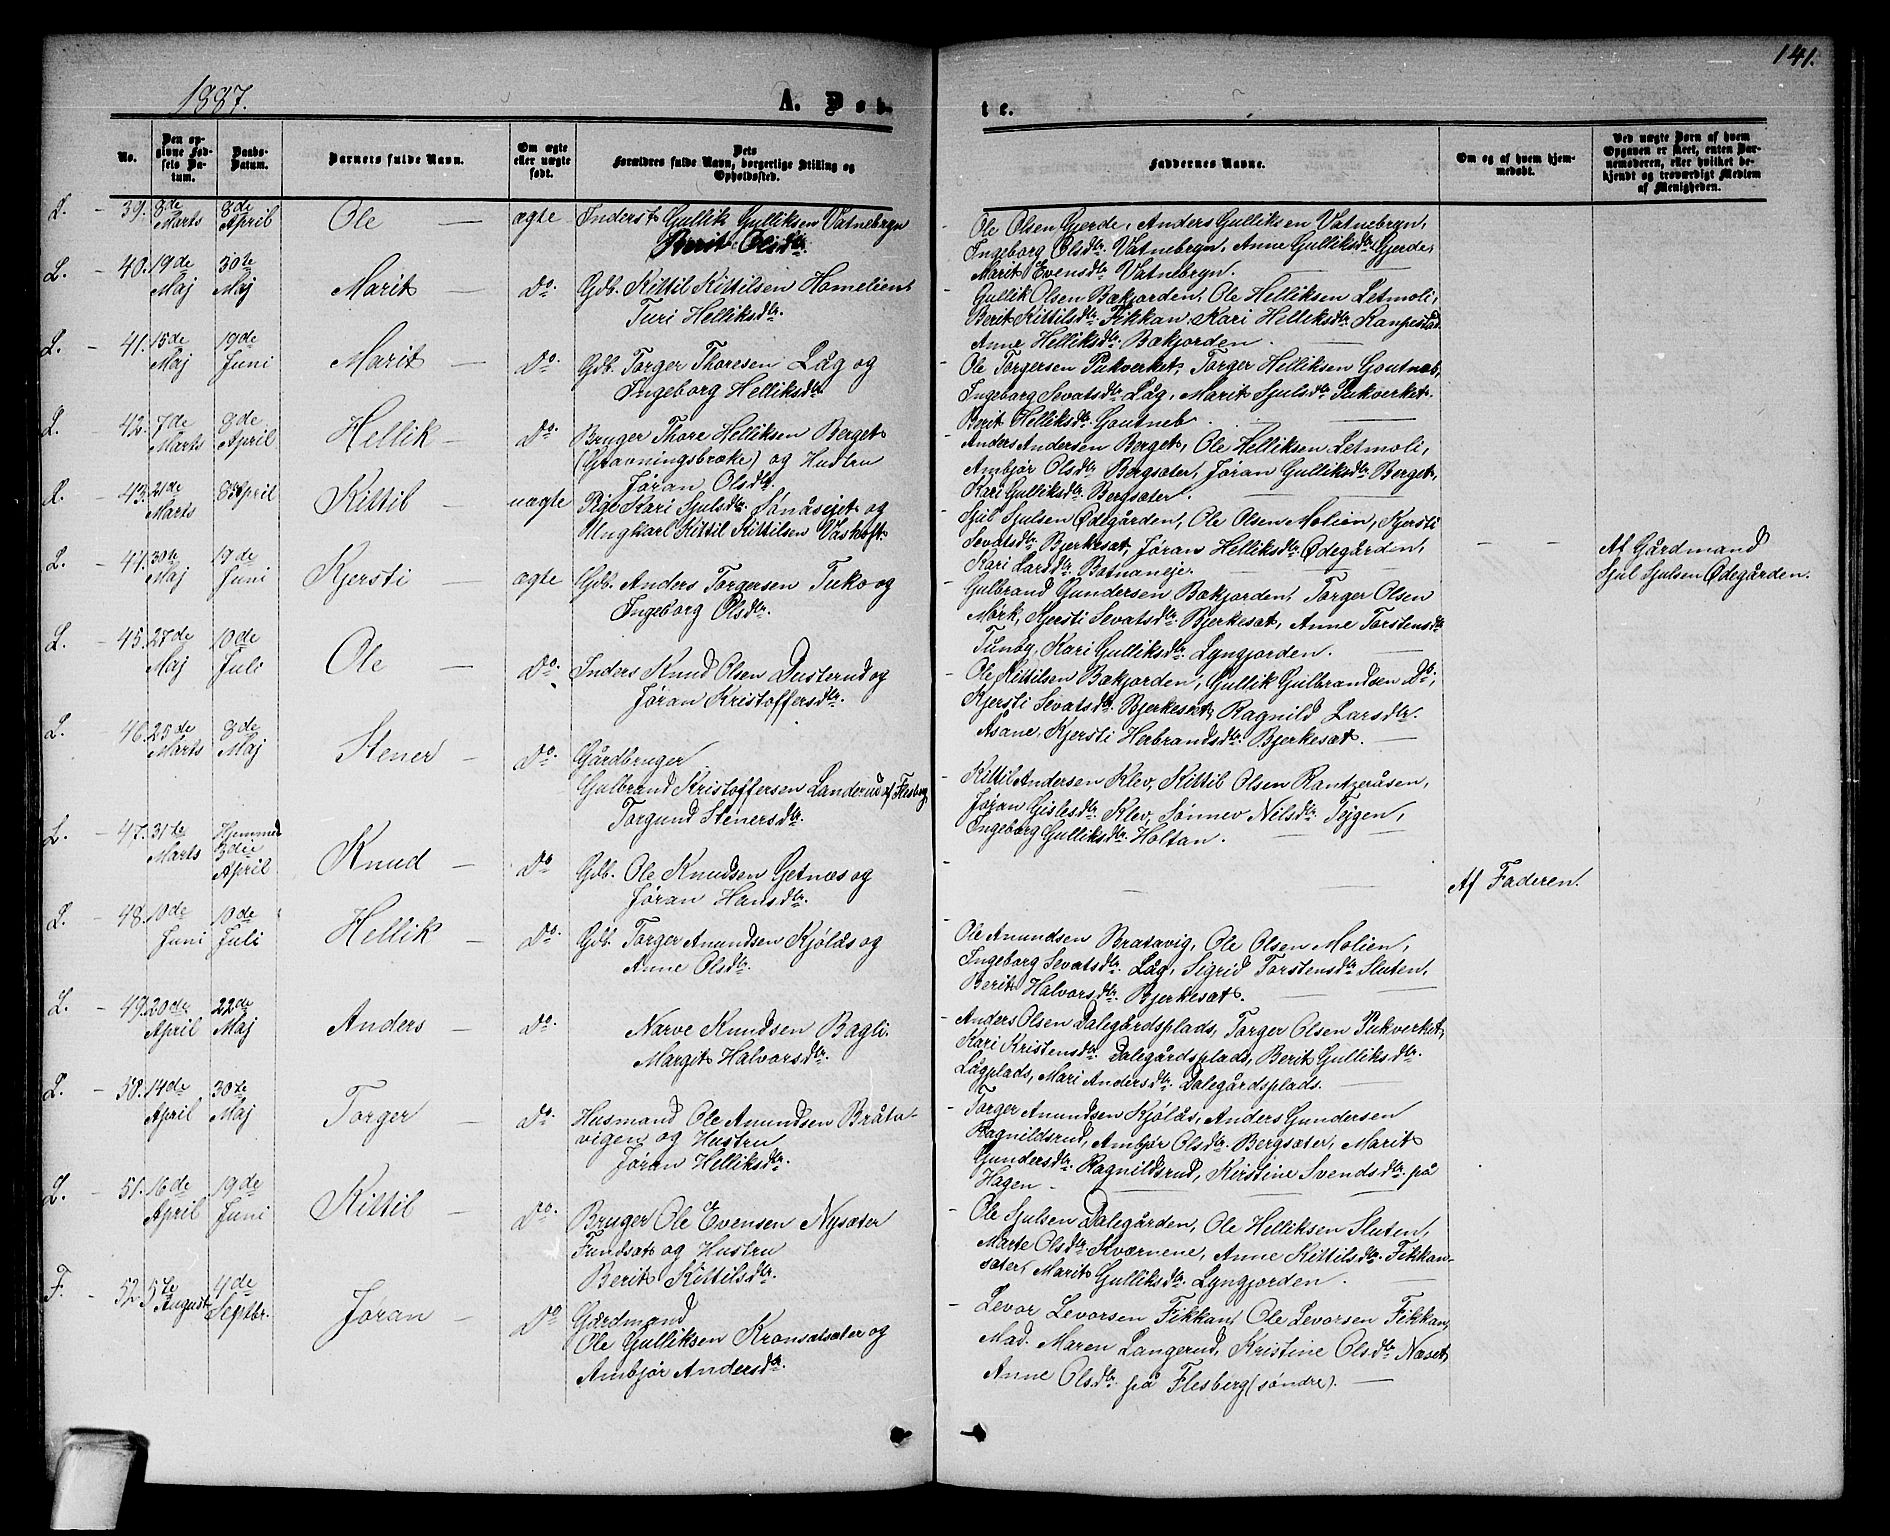 141.
1887.
A. Døb-
te.
No.
Den opgivne Fødsels Datum.
Daabs-Datum.
Barnets fulde Navn.
Om ægte eller uægte født.
Dets Forældres fulde Navn, borgerlige Stilling og Opholdssted.
Faddernes Navne.
Om og af hvem hjemmedøbt.
Ved uægte Børn af hvem Opgaven er skeet, enten Barnemoderen, eller hvilket bekjendt og troværdigt Medlem af Menigheden.
L. - 39. 8de Marts 8de April Ole - ægte
Inderst Gullik Gulliksen Vatnebryn
Berit Olsdtr.
Ole Olsen Gjerde, Anders Gulliksen Vatnebryn,
Ingeborg Olsdtr. Vatnebryn, Anne Gulliksdtr Gjerde,
Marit Evensdtr Vatnebryn.
L. - 40. 19de Maj 30te Maj Marit - Do.
Gdb. Kittil Kittilsen Homelien
Turi Helliksdtr.
Gullik Olsen Bakjorden, Ole Helliksen Letmoli,
Berit Kittilsdtr Fikkan, Kari Helliksdtr
Anne Helliksdtr. Bakjorden.
L. - 41. 15de Maj 19de Juni Marit - Do.
Gdb. Torger Thoresen Låg og
Ingeborg Helliksdtr
Ole Torgersen Pukverket, Torger Helliksen Goutneb,
Ingeborg Sevatsdtr Låg, Marit Sjulsdtr Pukverket.
Berit Helliksdtr. Goutneb.
L. - 42. 7de Marts 8de April Hellik - Do.
Bruger Thore Helliksen Berget
(Gravningsbrække) og Hustru
Jøran Olsdtr.
Anders Andersen Berget, Ole Helliksen Letmoli,
Ambjør Olsdtr Bergsæter, Jøran Gulliksdtr. Berget,
Kari Gulliksdtr. Bergsæter.
L. - 43. 21de Marts 8de April Kittil - uægte
Pige Kari Sjulsdtr. Sønåseiet og
Ungkarl Kittil Kittilsen Vaskoft
Sjul Sjulsen Ødegården, Ole Olsen Molien, Kjersti
Sevatsdtr. Bjerkesæt, Jøran Helliksdtr. Ødegården,
Kari Larsdtr. Botnaneje.
Af Gårdmand
Sjul Sjulsen Ødegården.
L. - 44. 30te Maj 19de Juni Kjersti - ægte
Gdb. Anders Torgersen Tuko og
Ingeborg Olsdtr.
Gulbrand Gundersen Bakjorden, Torger Olsen
Mørk, Kjersti Sevatsdtr. Bjerkesæt, Anne Torstensdtr
Tunby, Kari Gulliksdtr. Lyngjorden.
L. - 45. 27de Maj 10de Juli Ole - Do.
Inders Knud Olsen Dusterud og
Jøran Kristoffersdtr.
Ole Kittilsen Bakjorden, Gullik Gulbrandsen Do.,
Kjersti Sevatsdtr. Bjerkesæt, Ragnild Larsdtr.
Åsane, Kjersti Herbrandsdtr. Bjerkesæt.
L. - 46. 25de Marts 8de Maj Stener - Do.
Gårdbruger
Gulbrand Kristoffersen Landerud af Flesberg,
Torgund Stenersdtr.
Kittil Andersen Klev, Kittil Olsen Rantzeråsen,
Jøran Gislesdtr. Klev, Sønnev Nilsdtr Tejgen,
Ingeborg Gulliksdtr Holtan.
L. - 47. 31te Marts Hjemme 3die April Knud - Do
Gdb. Ole Knudsen Getnæs og
Jøran Hansdtr.
Af Faderen.
L. - 48. 10de Juni 10de Juli Hellik - Do.
Gdb. Torger Anundsen Kjølås og
Anne Olsdtr.
Ole Anundsen Bratavig, Ole Olsen Molien,
Ingeborg Sevatsdtr. Låg, Sigrid Torstensdtr Sluten,
Berit Halvorsdtr. Bjerkesæt.
L. - 49. 20de April 22de Maj Anders - Do.
Narve Knudsen Bagli.
Margit Halvorsdtr.
Anders Olsen Dalegårdsplads, Torger Olsen Pukverket,
Kari Kristensdtr. Dalegårdsplads, Berit Gulliksdtr.
Lågplads, Mari Andersdtr. Dalegårdsplads.
L. - 50. 14de April 30te Maj Torger - Do.
Husmand Ole Anundsen Bråta-
vigen og Hustru
Jøran Helliksdtr.
Torger Anundsen Kjølås, Anders Gundersen
Ragnildsrud, Ambjør Olsdtr. Bergsæter, Marit
Gundersdtr. Ragnildsrud, Kirstine Svendsdtr. på
Hagen -
L. - 51. 16de April 19de Juni Kittil - Do.
Bruger Ole Evensen Nysæter
Fundsæt og Hustru
Berit Kittilsdtr.
Ole Sjulsen Dalegården, Ole Helliksen Sluten,
Marte Olsdtr Kværnene, Anne Kittilsdtr. Fikkan-
sæter, Marit Gulliksdtr. Lyngjorden.
F. - 52. 5te August 4de Septbr. Jøran - Do
Gårdmand
Ole Gulliksen Kronsætsæter og
Ambjør Andersdtr.
Levor Levorsen Fikkan, Ole Levorsen Fikkan,
Mad. Maren Langerud, Kristine Olsdtr. Næset,
Anne Olsdtr. på Flesberg (søndre).